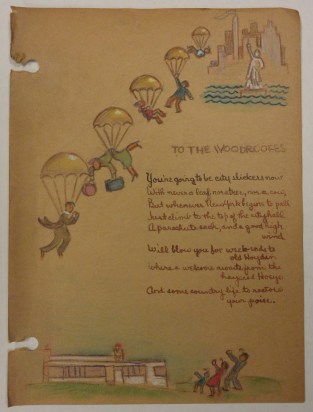 TO THE WOODCOCKS
You're going to be city slickers now
With never a leaf nor tree, nor a cow,
But whenever New York begins to pall
Just climb to the top of the city hall,
A parachute each, and a good high
wind
Will blow you for weekends to
old
Where a welcome awaits from the
loyal
And some country life to restore
your poise.